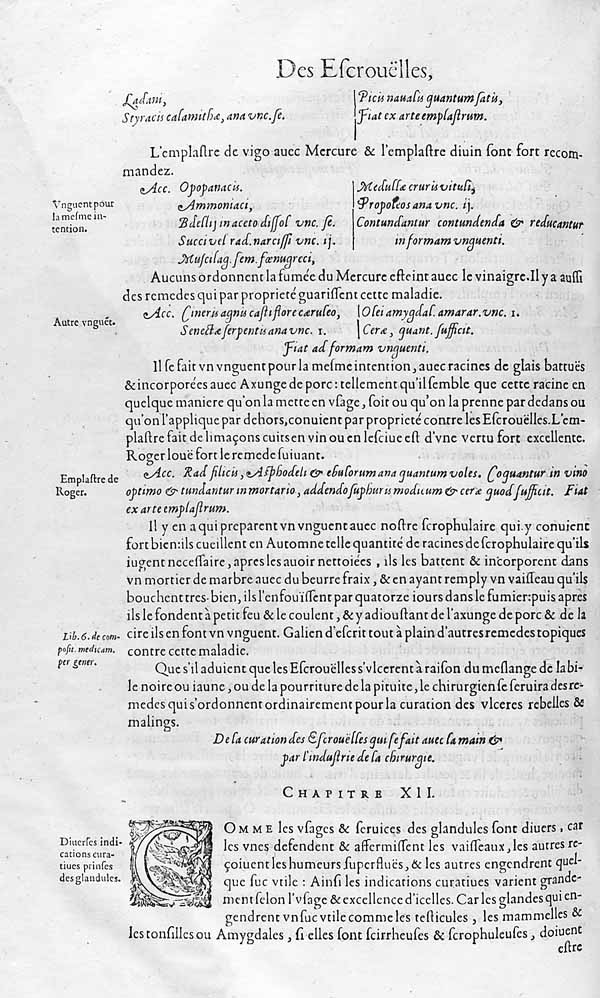 Des Eſcrouëlles,
Ladani,
Styracis calamithæ, ana vnc. ſe.
Picis naualis quantum ſatis,
Fiat ex arte emplaſtrum.
L'emplaſtre de vigo auec Mercure & l'emplaſtre diuin ſont fort recom-
mandez.
Vnguent pour
la meſme in-
tention.
Acc. Opopanacis.
Ammoniaci,
Bdellij in aceto diſſol vnc. ſe.
Succi vel rad. narciſſi vnc. ij.
Muſcilag. ſem. fœnugreci,
Medullæ cruris vituli,
Propoleos ana vnc. ij.
Contundantur contundenda & reducantur
in formam vnguenti.
Aucuns ordonnent la fumée du Mercure eſteint auec le vinaigre. Il y a auſſi
des remedes qui par proprieté guariſſent cette maladie.
Autre vnguẽt.
Acc. Cineris agnis caſti flore cæruleo,
Senectæ ſerpentis ana vnc. 1.
Olei amygdal. amarar. vnc. 1.
Ceræ, quant. ſufficit.
Fiat ad formam vnguenti.
Il ſe fait vn vnguent pour la meſme intention, auec racines de glais battuës
& incorporées auec Axunge de porc: tellement qu'il ſemble que cette racine en
quelque maniere qu'on la mette en vſage, ſoit ou qu'on la prenne par dedans ou
qu'on l'applique par dehors, conuient par proprieté contre les Eſcrouëlles. L'em-
plaſtre fait de limaçons cuits en vin ou en leſciue eſt d'vne vertu fort excellente.
Roger louë fort le remede ſuiuant.
Emplaſtre de
Roger.
Acc. Rad filicis, Aſphodeli & ebulorum ana quantum voles. Coquantur in vino
optimo & tundantur in mortario, addendo ſulphuris modicum & ceræ quod ſufficit. Fiat
ex arte emplaſtrum.
Il y en a qui preparent vn vnguent auec noſtre ſcrophulaire qui y conuient
fort bien: ils cueillent en Automne telle quantité de racines de ſcrophulaire qu'ils
iugent neceſſaire, apres les auoir nettoiées, ils les battent & incorporent dans
vn mortier de marbre auec du beurre fraix, & en ayant remply vn vaiſſeau qu'ils
bouchent tres-bien, ils l'enfouïſſent par quatorze iours dans le fumier: puis apres
ils le fondent à petit feu & le coulent, & y adiouſtant de l'axunge de porc & de la
cire ils en font vn vnguent. Galien d'eſcrit tout à plain d'autres remedes topiques
contre cette maladie.
Lib. 6. de com-
poſit. medicam.
per gener.
Que s'il aduient que les Eſcrouëlles s'vlcerent à raiſon du meſlange de la bi-
le noire ou iaune, ou de la pourriture de la pituite, le chirurgien ſe ſeruira des re-
medes qui s'ordonnent ordinairement pour la curation des vlceres rebelles &
malings.
De la curation des Eſcrouëlles qui ſe fait auec la main &
par l'induſtrie de la chirurgie.
CHAPITRE XII.
Diuerſes indi-
cations cura-
tiues prinſes
des glandules.
COMME les vſages & ſeruices des glandules ſont diuers, car
les vnes defendent & affermiſſent les vaiſſeaux, les autres re-
çoiuent les humeurs ſuperfluës, & les autres engendrent quel-
que ſuc vtile: Ainſi les indications curatiues varient grande-
ment ſelon l'vſage & excellence d'icelles. Car les glandes qui en-
gendrent vn ſuc vtile comme les teſticules, les mammelles &
les tonſilles ou Amygdales, ſi elles ſont ſcirrheuſes & ſcrophuleuſes, doiuent
eſtre